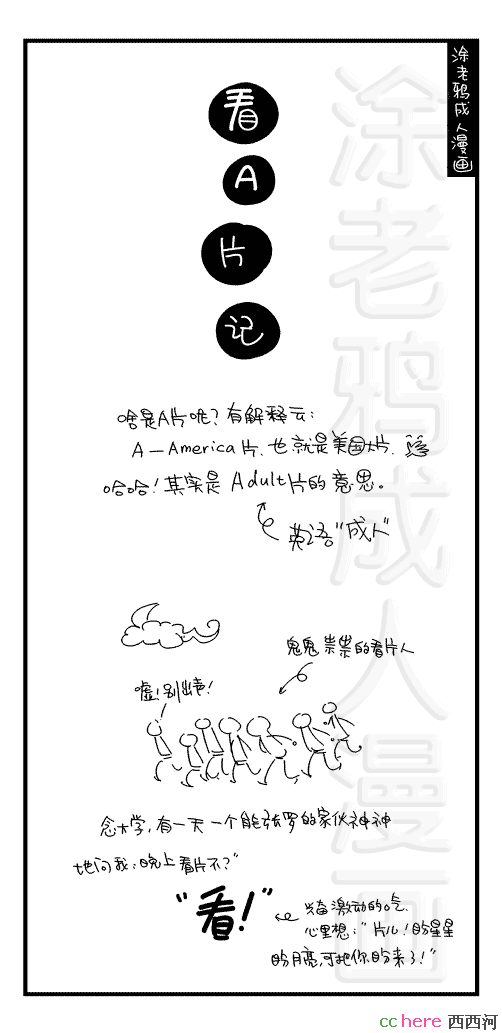 涂老鸦成人漫画
涂老鸦成人漫画
看A片记
啥是A片呢？有解释云：
A—America片、也就是美国大片．
哈哈！其实是Adult片的意思。
英语"成人"
鬼鬼祟祟的看片人
嘘！别出声！
念大学，有一天一个能张罗的家伙神神
地问我："晚上看片不？"
"看！"
兴奋激动的吃
心里想："片儿！盼星星
盼月亮，可把你盼来了！"
cchere 西西河